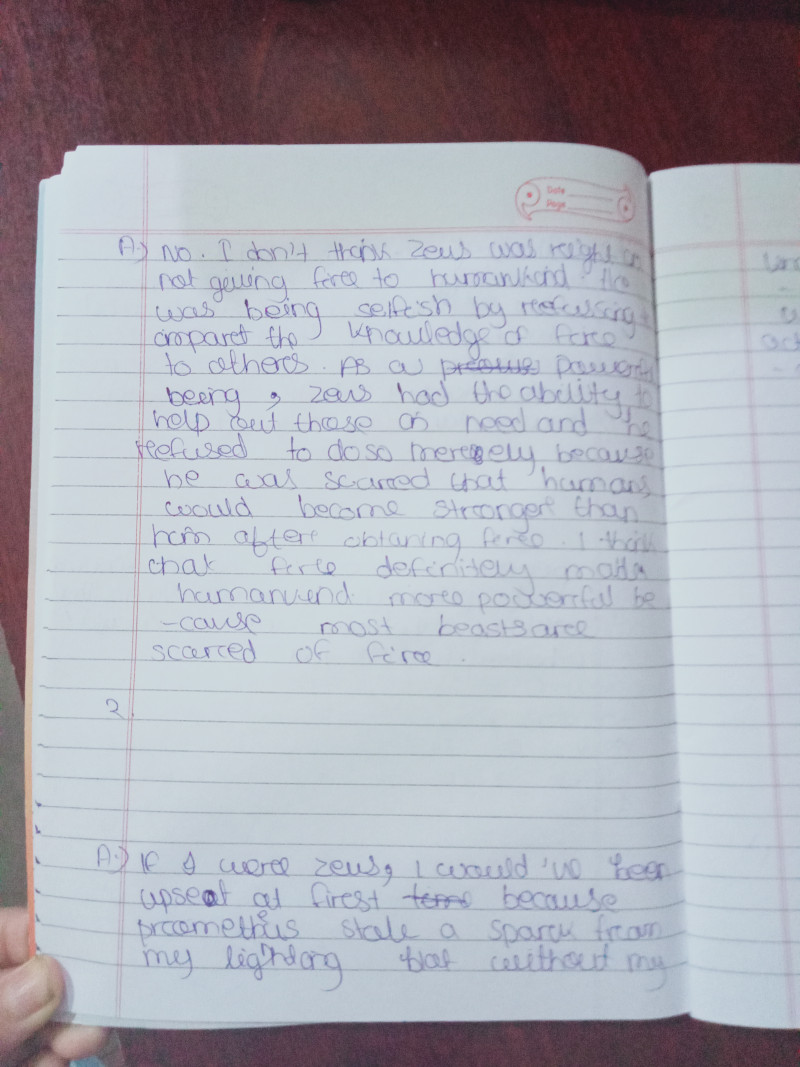 Date
Page
A.) No. I don't think Zeus was right in
not giving fire to humankind. He
was being selfish by refussing to
impart the knowledge of fire
to others. As a powerful
being, Zeus had the ability to
help out those in need and he
refused to do so merely because
he was scarred that humans
would become stronger than
him after obtaning fire. I think
that fire definitely made
humankind more powerful be
-cause most beasts are
scarred of fire.
2.
A.) If I were Zeus, I would've been
upset at first because
promethius stole a spark from
my lightning that without my